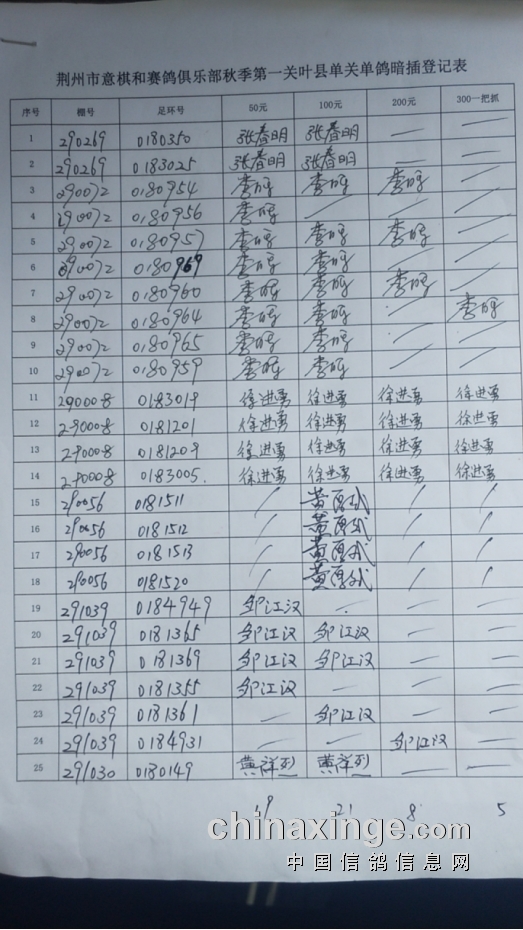 荆州市意棋和赛鸽俱乐部秋季第一关叶县单关单鸽暗插登记表
序号 棚号 足环号 50元 100元 200元 300一把抓
1 290269 0180350 张春明 张春明 — —
2 290269 0183025 张春明 张春明 — —
3 290072 0180954 李 李 李 —
4 290072 0180956 李 — — —
5 290072 0180957 李 李 李 —
6 290072 0180969 李 李 — —
7 290072 0180960 李 李 李 —
8 290072 0180964 李 李 — 李
9 290072 0180965 李 李 — —
10 290072 0180959 李 李 — —
11 290008 0183019 徐进勇 徐进勇 徐进勇 徐进勇
12 290008 0181201 徐进勇 徐进勇 徐进勇 徐进勇
13 290008 0181209 徐进勇 徐进勇 徐进勇 徐进勇
14 290008 0183005. 徐进勇 徐进勇 徐进勇 徐进勇
15 290056 0181511 / 黄 / /
16 290056 0181512 / 黄 / /
17 290056 0181513 / 黄 / /
18 290056 0181520 / 黄 / /
19 291039 0184949 邹江汉 — — —
20 291039 0181365 邹江汉 邹江汉 — —
21 291039 0181369 邹江汉 邹江汉 — —
22 291039 0181355 邹江汉 — — —
23 291039 0181361 — 邹江汉 — —
24 291039 0184931 — — 邹江汉 —
25 291030 0180149 黄祥烈 黄祥烈 — —
19 21 8 5
chinaxinge.com
中国信鸽信息网